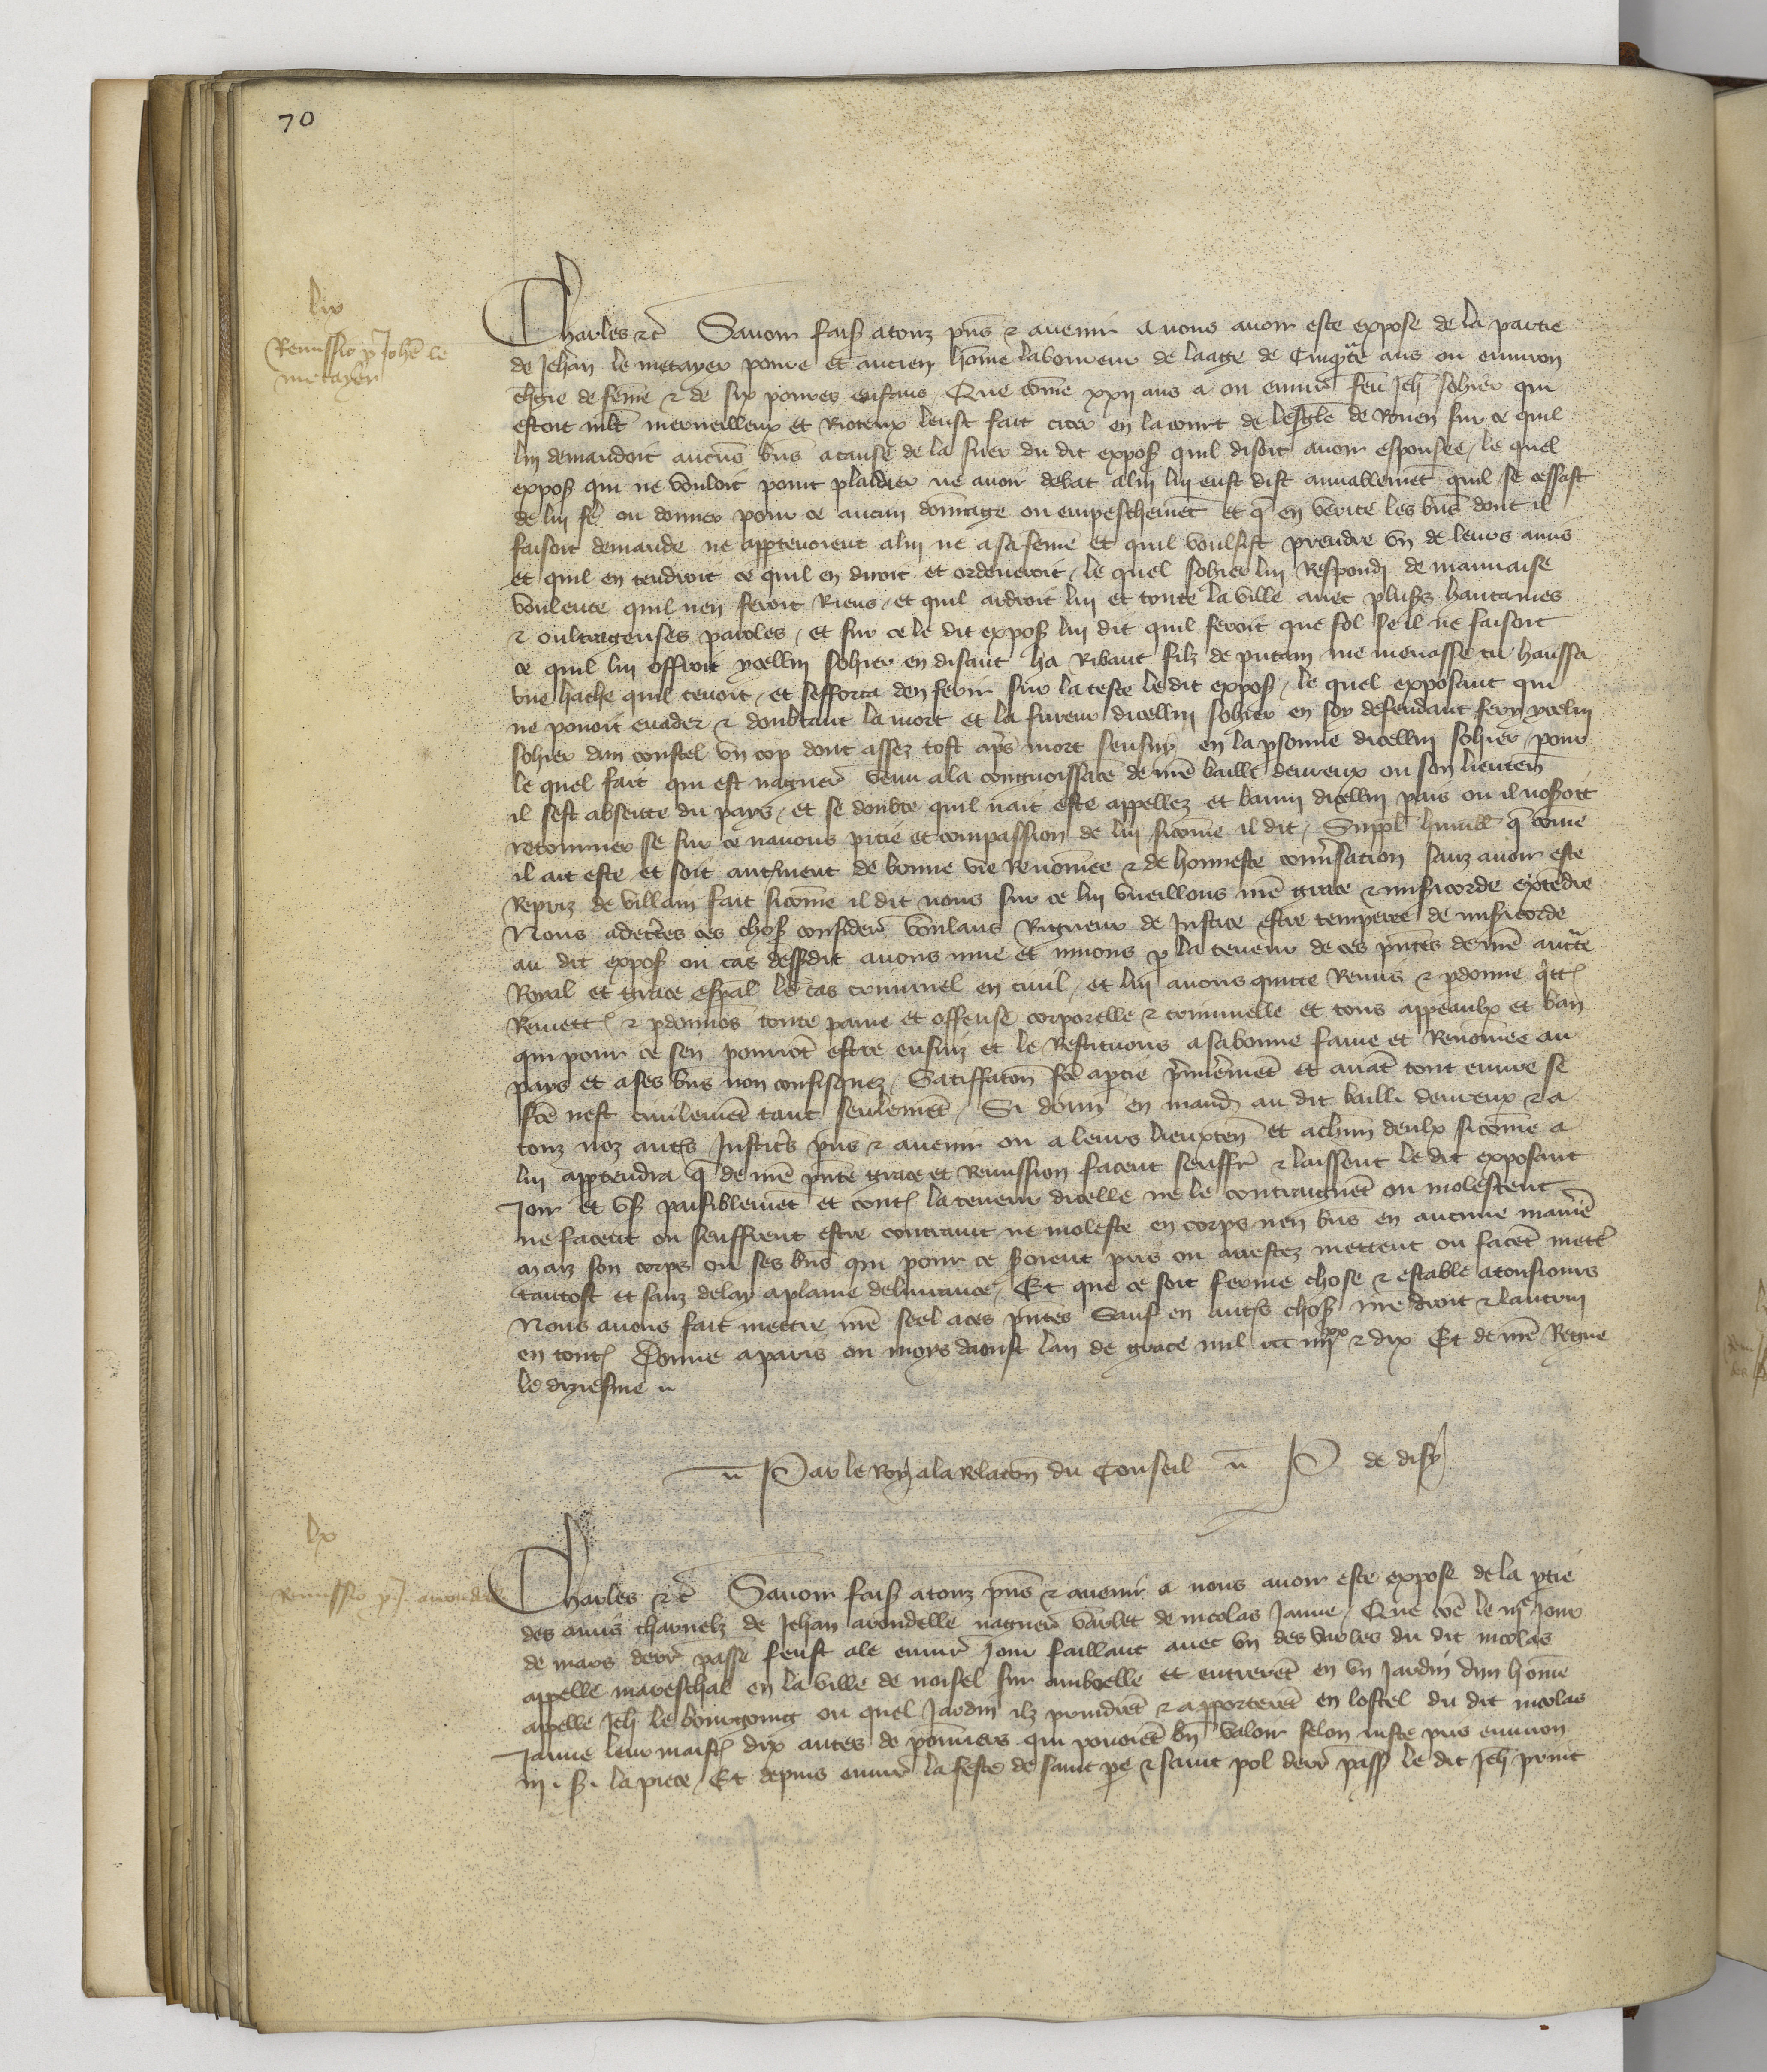 70
lix
Remissio p Johe le
metayer
Charles etc Savoir fais atouz pns & avenir a nous avoir este expose de la partie
de Jehan le metayer povre et ancien home laboureur de laage de Cinqte ans ou environ
chgie de feme & de six povres enfans Que come xxii ans a ou envir feu Jeh sohier qui
estoit mlt merveilleux et Rioteux leust fait citer en la court de lesgle de Rouen sur ce quil
lui demandoit aucuns bns acause de la suer du dit expos quil disoit avoir espousee / le quel
expos qui ne vouloit point plaidier ne avoir debat alui lui eust dist amiablemet quil se cessast
de lui fe ou donner pour ce aucun domage ou empeschemet et q en verite les bns dont il
faisoit demande ne apptenoient alui ne asa feme et quil voulsist prendre vn de leurs amis
et quil en tendroit ce quil en diroit et ordeneroit / le quel sohier lui Respondi de mauvaise
voulente quil nen feroit Riens / et quil ardroit lui et toute la ville avec pluss hautaines
& oultrageuses paroles / et sur ce le dit expos lui dit quil feroit que fol se il ne faisoit
ce quil lui offroit ycellui sohier en disant ha Ribaut filz de putain me menasse tu haussa
vne hache quil tenoit / et sefforca den ferir sur la teste le dit expos / le quel exposant qui
ne povoit evader & doubtant la mort et la fureur dicellui sohier en soy defendant fery ycelui
sohier dun coustel vn cop dont assez tost aps mort sensuy en la psonne dicellui sohier / pour
le quel fait qui est naguer venu ala congnoissace de nre bailli devreux ou son lieuten
il sest absente du pays / et se doubte quil nait este appellez et banni dicellui pais ou il noseroit
retourner se sur ce navons pitie et compassion de lui sicome il dit / Suppl humbl q come
il ait este et soit autrement de bonne vie Renomee & de honneste conversation sanz avoir este
Repris de villain fait sicome il dit nous sur ce lui vueillons nre grace & misicorde extedre
Nous adecertes ces chos consider voulans Rigueur de Justice estre temperee de misicorde
au dit expos ou cas dessdit avons mue et muons p la teneur de ces pntes de nre aucte
Royal et grace espal le cas criminel en civil / et lui avons quitte Remis & pdonne qtt
Remett & pdonnos toute paine et offense corporelle & criminelle et tous appeaulx et ban
qui pour ce sen pourrot estre ensuiz et le Restituons asa bonne fame et Renomee au
pays et ases bns non confisquez / Satiffaton fce aptie pmieremet et avat tout euvre se
fce nest civilemet tant seulemet / Si donn en mand au dit bailli devreux & a
touz noz autrs Justicrs pns & avenir ou a leurs lieuxten et achun deulx sicome a
lui apptendra q de nre pnte grace et Remission facent seuffr & laissent le dit exposant
Joir et us paisiblemet et cont la teneur dicelle ne le contraignet ou molestent
ne facent ou seuffrent estre contraint ne moleste en corps nen bns en aucune manie
maiz son corps ou ses bns qui pour ce seroient pris ou arrestez mettent ou facet mettr
tantost et sanz delay aplaine delivrance / Et que ce soit ferme chose & estable atousiours
Nous avons fait mettre nre seel aces pntes Sauf en autrs chos nre droit & lautrui
en tout Donne aparis ou moys daoust lan de grace mil ccc iiiixx & dix Et de nre Regne
le dixiesme
Par le Roy ala Relacon du Conseil P de disy
lx
Remissio p J. arondelle
Charles etc Savoir fais atouz pns & avenir a nous avoir este expose de la ptie
des amis charnelz de Jehan arondelle naguer varlet de nicolas Janne / Que coe le iije Jour
de mars derr passe feust ale envir Jour faillant avec vn des varles du dit nicolas
appelle mareschal en la ville de noisel sur amboelle et entreret en vn Jardin dun home
appelle Jeh le bourgoing ou quel Jardin ilz prindret & apporteret en lostel du dit nicolas
Janne leur maist dix antes de pomiers qui povoiet bn valoir selon iuste pris environ
iij s. la piece / Et depuis envir la feste de saint pe & saint pol derr pass le dit Jeh print